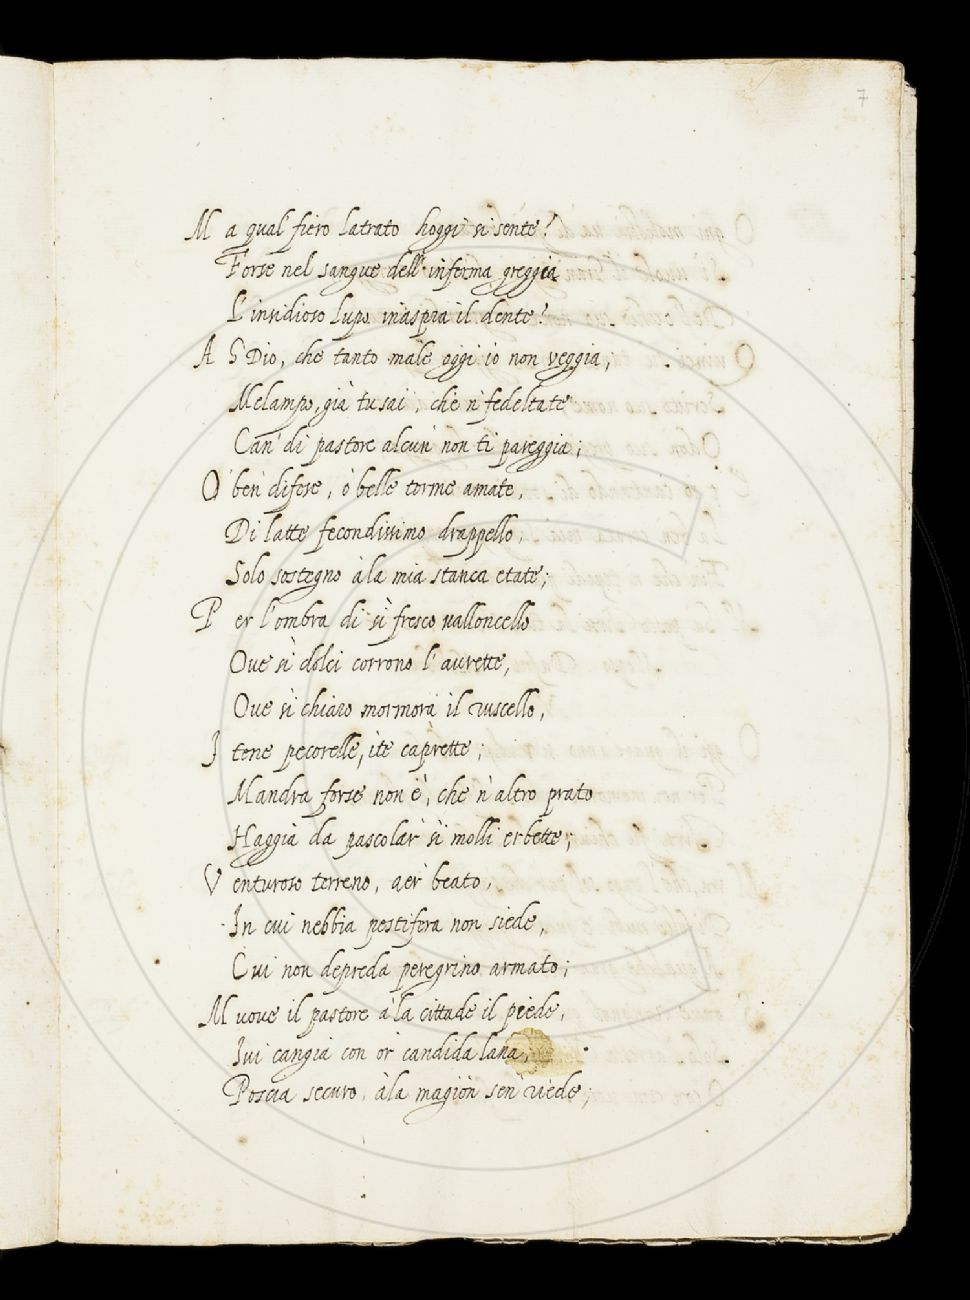 7
Ma qual fiero latrato hoggi si sente?
Forse nel sangue dell'inferma greggia
L'insidioso lupo inaspra il dente?
A Dio, che tanto male oggi io non veggia,
Melampo, già tu sai, che 'n fedeltate
Can di pastore alcun non ti pareggia;
O ben difese, ò belle torme amate,
Di latte fecondissimo drappello,
Solo sostegno à la mia stanca etate;
Per l'ombra di sì fresco valloncello
Ove sì dolci corrono l'aurette,
Ove sì chiaro mormora il ruscello,
Itene pecorelle, ite caprette;
Mandra forse non è, che 'n altro prato
Haggia da pascolar sì molli erbette;
Venturoso terreno, aer beato,
In cui nebbia pestifera non siede,
Cui non depreda peregrino armato;
Muove il pastore à la cittade il piede,
Ivi cangia con or candida lana,
Poscia securo à la magion sen riede;